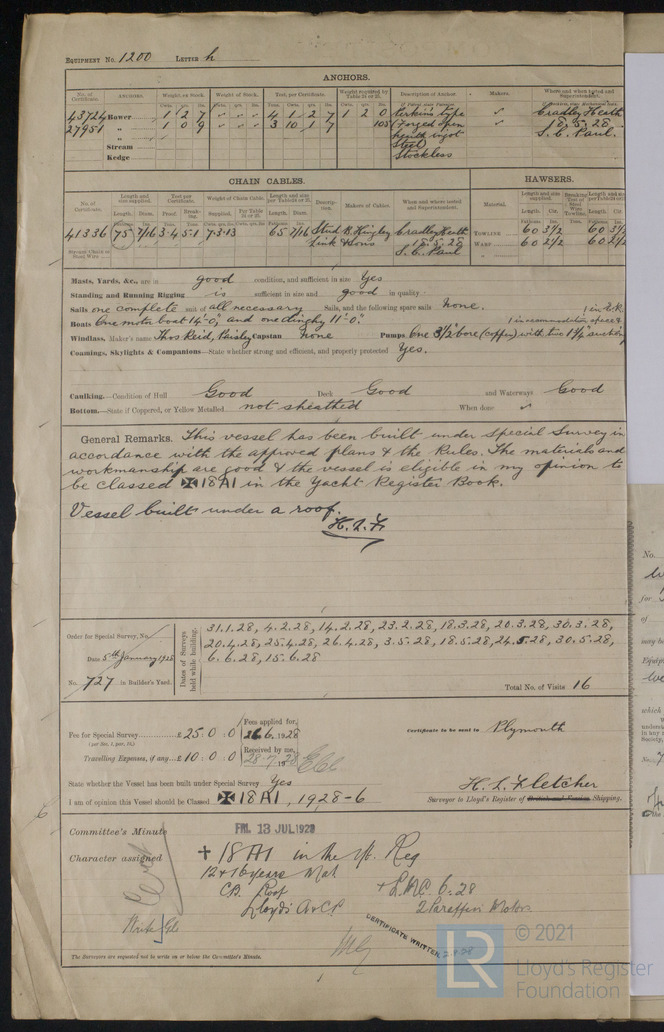 Equipment No. 1200 Letter h
ANCHORS.
No. of Certificate. ANCHORS. Weight ex Stock. Weight of Stock. Test, per Certificate. Weight required by Table 24 or 25. Description of Anchor. Makers. Where and when tested and Superintendent.
43724 Bower 1 2 7 4 1 2 7 1 2 0 Perkins type Cradley Heath
27951 " 1 0 9 3 10 1 7 105 (Forged open 18.5.28
" hearth ingot S.C. Paul.
Stream Steel)
Kedge Stockless
CHAIN CABLES.
HAWSERS.
No. of Certificate. Length and size supplied. Test per Certificate. Weight of Chain Cable. Length and size per Table 24 or 25. Description. Makers of Cables. When and where tested and Superintendent. Material. Length and size supplied. Breaking Test of Steel Wire Towline. Length and size per Table 24 or 25.
41336 75 7/16 3.4 5.1 7.3.13 65 7/16 Stud B. Hingley Cradley Heath Towline 60 3½ 60 3½
Link & Sons 18.5.28 Warp 60 2½ 60 2½
S.C. Paul
Masts, Yards, &c., are in good condition, and sufficient in size Yes
Standing and Running Rigging is sufficient in size and good in quality
Sails one complete suit of all necessary Sails, and the following spare sails None.
Boats One motor boat 14'-0", and one dinghy 11'-0". 1 in accommodation space &
1 in E.R.
Windlass, Maker's name Thos Reid, Paisley Capstan none Pumps One 3½" bore (copper) with two 1¼" suctions
Coamings, Skylights & Companions—State whether strong and efficient, and properly protected Yes.
Caulking.—Condition of Hull Good Deck Good and Waterways Good
Bottom.—State if Coppered, or Yellow Metalled not sheathed When done
General Remarks. This vessel has been built under Special Survey in
accordance with the approved plans & the Rules. The materials and
workmanship are good & the vessel is eligible in my opinion to
be classed ✠18A1 in the Yacht Register Book.
Vessel built under a roof.
H.L.F.
Order for Special Survey, No.
Date 5th January 1928
No. 727 in Builder's Yard.
Dates of Surveys held while building.
31.1.28, 4.2.28, 14.2.28, 23.2.28, 18.3.28, 20.3.28, 30.3.28,
20.4.28, 25.4.28, 26.4.28, 3.5.28, 18.5.28, 24.5.28, 30.5.28,
6.6.28, 15.6.28
Total No. of Visits 16
Fee for Special Survey £25:0:0 Fees applied for, 26.6.1928
Travelling Expenses, if any £10:0:0 Received by me, 28.7.1928
Certificate to be sent to Plymouth
State whether the Vessel has been built under Special Survey Yes
I am of opinion this Vessel should be Classed ✠18A1, 1928-6
H. L. Fletcher
Surveyor to Lloyd's Register of British and Foreign Shipping.
Committee's Minute FRI. 13 JUL 1928
Character assigned + 18A1 in the Yt. Reg
12 + 16 years Mat
CB. Roof + LMC 6.28
Lloyd's A & CP. 2 Paraffin Motors
CERTIFICATE WRITTEN
The Surveyors are requested not to write on or below the Committee's Minute.
LR © 2021
Lloyd's Register
Foundation